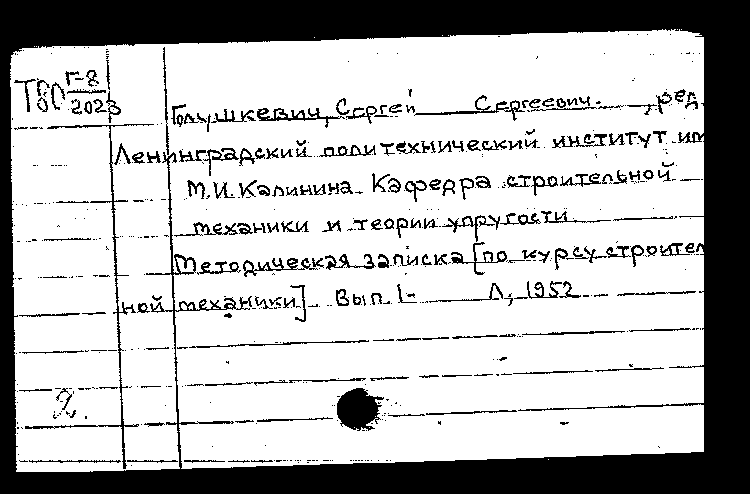 Т80 Г-8
2023
Голушкевич, Сергей Сергеевич, ред.
Ленинградский политехнический институт им
М.И. Калинина. Кафедра строительной
механики и теории упругости.
Методическая записка [по курсу строитель
ной механики]. Вып. 1- Л., 1952
2.